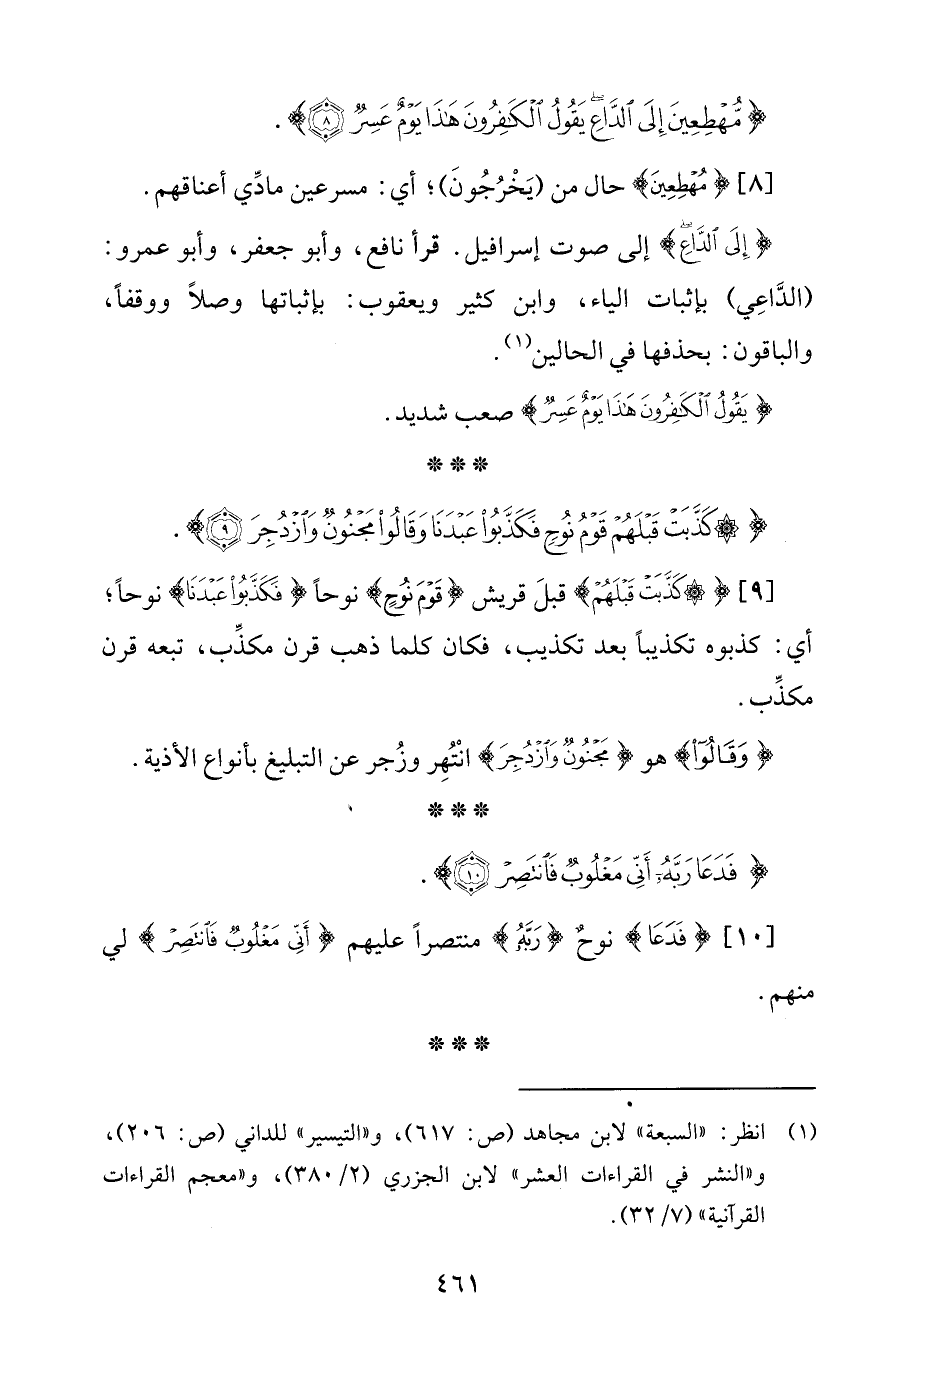 ﴿ مُّهْطِعِينَ إِلَى ٱلدَّاعِۖ يَقُولُ ٱلْكَٰفِرُونَ هَٰذَا يَوْمٌ عَسِرٌ ﴿٨﴾ ﴾ .
[٨] ﴿ مُهْطِعِينَ ﴾ حال من (يَخْرُجُونَ)؛ أي: مسرعين مادِّي أعناقهم .
﴿ إِلَى ٱلدَّاعِۖ ﴾ إلى صوت إسرافيل . قرأ نافع، وأبو جعفر، وأبو عمرو:
(الدَّاعِي) بإثبات الياء، وابن كثير ويعقوب: بإثباتها وصلاً ووقفاً،
والباقون: بحذفها في الحالين(١) .
﴿ يَقُولُ ٱلْكَٰفِرُونَ هَٰذَا يَوْمٌ عَسِرٌ ﴾ صعب شديد .
* * *
﴿ ۞ كَذَّبَتْ قَبْلَهُمْ قَوْمُ نُوحٍ فَكَذَّبُوا۟ عَبْدَنَا وَقَالُوا۟ مَجْنُونٌ وَٱزْدُجِرَ ﴿٩﴾ ﴾ .
[٩] ﴿ ۞ كَذَّبَتْ قَبْلَهُمْ ﴾ قبلَ قريش ﴿ قَوْمَ نُوحٍ ﴾ نوحاً ﴿ فَكَذَّبُوا۟ عَبْدَنَا ﴾ نوحاً؛
أي: كذبوه تكذيباً بعد تكذيب، فكان كلما ذهب قرن مكذِّب، تبعه قرن
مكذِّب .
﴿ وَقَالُوٓا۟ ﴾ هو ﴿ مَجْنُونٌ وَٱزْدُجِرَ ﴾ انْتُهِر وزُجر عن التبليغ بأنواع الأذية .
* * *
﴿ فَدَعَا رَبَّهُۥٓ أَنِّى مَغْلُوبٌ فَٱنتَصِرْ ﴿١٠﴾ ﴾ .
[١٠] ﴿ فَدَعَا ﴾ نوحٌ ﴿ رَبَّهُ ﴾ منتصراً عليهم ﴿ أَنِّى مَغْلُوبٌ فَٱنتَصِرْ ﴾ لي
منهم .
* * *
(١) انظر: «السبعة» لابن مجاهد (ص: ٦١٧)، و«التيسير» للداني (ص: ٢٠٦)،
و«النشر في القراءات العشر» لابن الجزري (٢/ ٣٨٠)، و«معجم القراءات
القرآنية» (٧/ ٣٢).
٤٦١